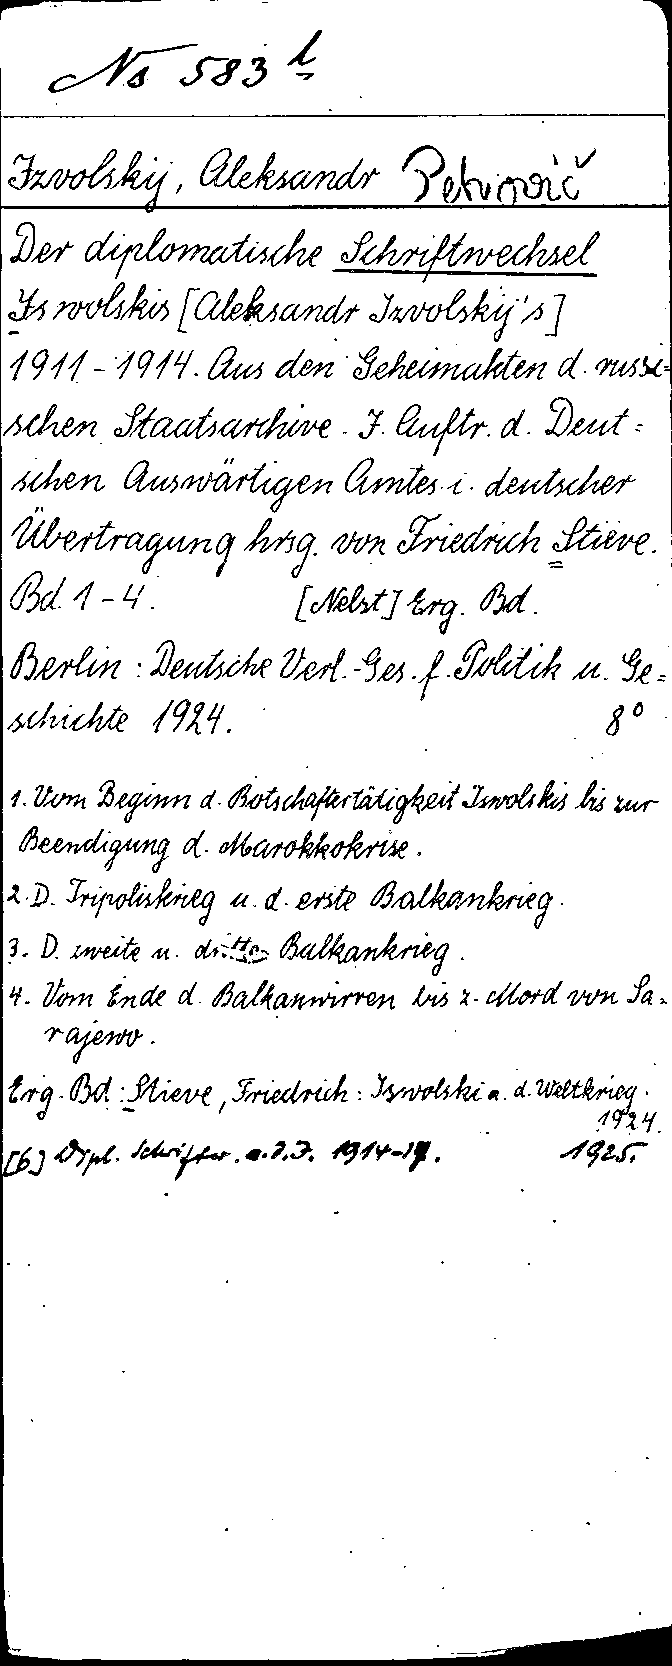 Ns 583 l
Izvolskij, Aleksandr Petrovič
Der diplomatische Schriftwechsel
Iswolskis [Aleksandr Izvolskij's]
1911-1914. Aus den Geheimakten d. russi=
schen Staatsarchive. I. Auftr. d. Deut=
schen Auswärtigen Amtes i. deutscher
Übertragung hrsg. von Friedrich Stieve.
Bd. 1-4. [Nebst] Erg. Bd.
Berlin: Deutsche Verl.-Ges. f. Politik u. Ge=
schichte 1924. 8°
1. Vom Beginn d. Botschaftertätigkeit Iswolskis bis zur
Beendigung d. Marokkokrise.
2. D. Tripoliskrieg u. d. erste Balkankrieg.
3. D. zweite u. dritte Balkankrieg.
4. Vom Ende d. Balkanwirren bis z. Mord von Sa-
rajewo.
Erg. Bd.: Stieve, Friedrich: Iswolski u. d. Weltkrieg.
1924.
[6] Dipl. Schriftw. a. d. J. 1914-17. 1925.